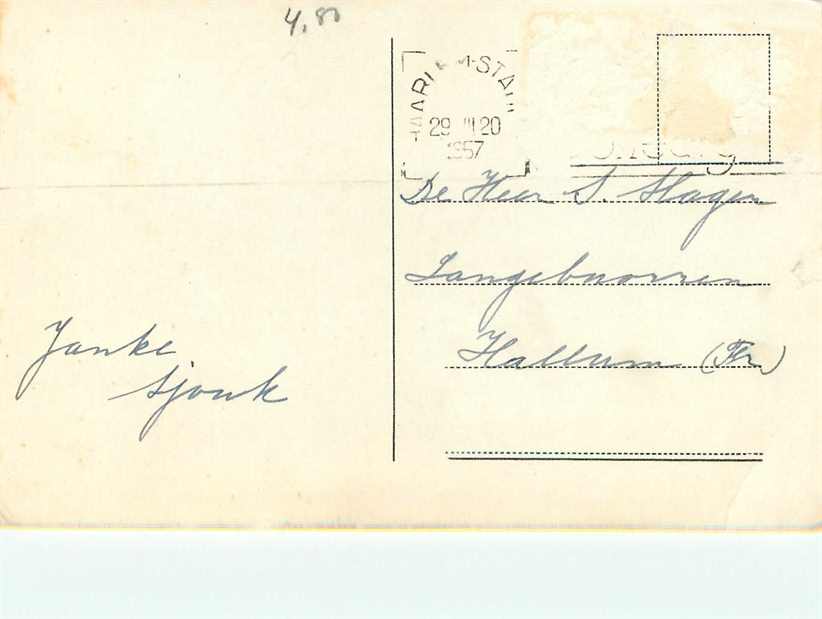 4,80
HAARLEM-STA
29 III 20
1957
De Heer S. Hager
Langebuorren
Hallum (Fr.)
Janke
Sjouk